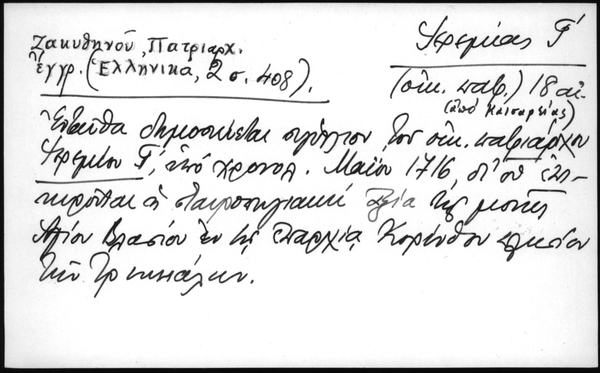 Ζακυθηνοῦ, Πατριαρχ.
ἔγγρ. (Ἑλληνικά, 2 σ. 408).
Ἱερεμίας Γ΄
(οἰκ. πατρ.) 18 αἰ.
(ἀπό Καισαρείας)
Ἐνταῦθα δημοσιεύεται σιγίλλιον τοῦ οἰκ. πατριάρχου
Ἱερεμίου Γ΄, ἀπό χρονολ. Μαΐου 1716, δι' οὗ ἐπι-
κυροῦται ἡ σταυροπηγιακή ἀξία τῆς μονῆς
Ἁγίου Βλασίου ἐν τῇ ἐπαρχίᾳ Κορίνθου πλησίον
τῶν Τρικκάλων.